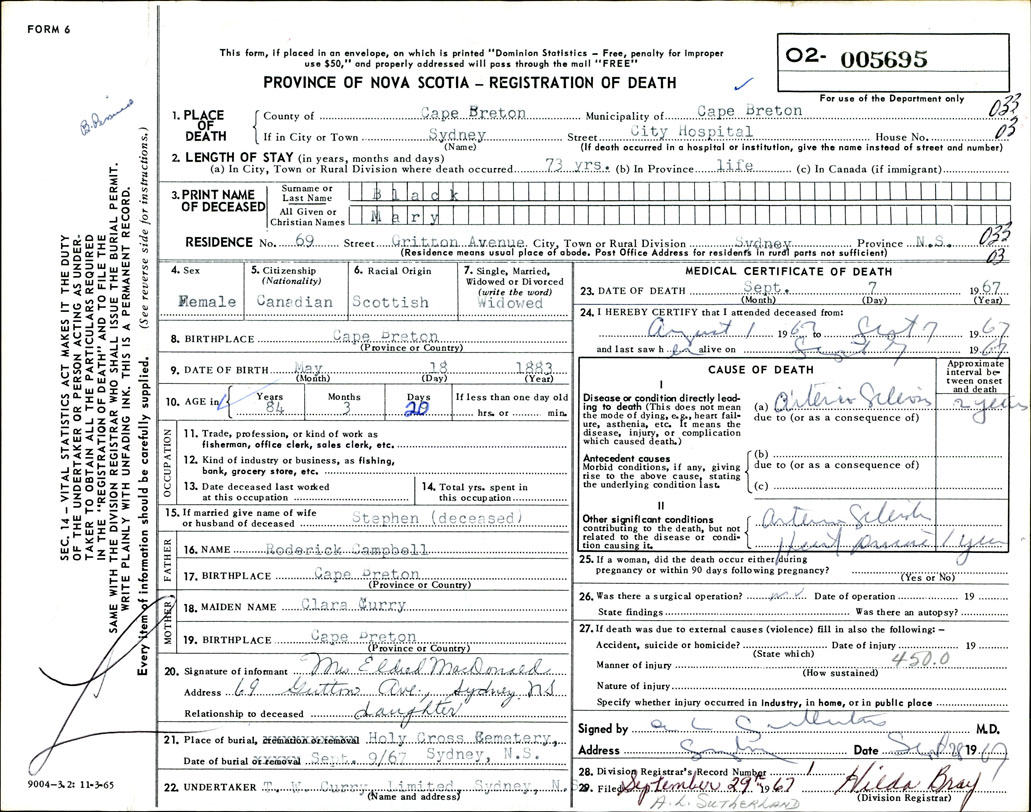 FORM 6
This form, if placed in an envelope, on which is printed "Dominion Statistics – Free, penalty for improper
use $50," and properly addressed will pass through the mail "FREE"
PROVINCE OF NOVA SCOTIA – REGISTRATION OF DEATH
O2- 005695
For use of the Department only
033
03
1. PLACE OF DEATH
County of Cape Breton Municipality of Cape Breton
If in City or Town Sydney Street City Hospital House No.
(Name) (If death occurred in a hospital or institution, give the name instead of street and number)
2. LENGTH OF STAY (in years, months and days)
(a) In City, Town or Rural Division where death occurred 73 yrs. (b) In Province life (c) In Canada (if immigrant)
3. PRINT NAME OF DECEASED
Surname or Last Name Black
All Given or Christian Names Mary
RESIDENCE No. 69 Street Gritton Avenue City, Town or Rural Division Sydney Province N.S. 033
(Residence means usual place of abode. Post Office Address for residents in rural parts not sufficient) 03
4. Sex
Female
5. Citizenship
(Nationality)
Canadian
6. Racial Origin
Scottish
7. Single, Married,
Widowed or Divorced
(write the word)
Widowed
8. BIRTHPLACE Cape Breton
(Province or Country)
9. DATE OF BIRTH May 18 1883
(Month) (Day) (Year)
10. AGE in Years Months Days If less than one day old
84 3 20 hrs. or min.
OCCUPATION
11. Trade, profession, or kind of work as
fisherman, office clerk, sales clerk, etc.
12. Kind of industry or business, as fishing,
bank, grocery store, etc.
13. Date deceased last worked
at this occupation
14. Total yrs. spent in
this occupation
15. If married give name of wife
or husband of deceased Stephen (deceased)
FATHER
16. NAME Roderick Campbell
17. BIRTHPLACE Cape Breton
(Province or Country)
MOTHER
18. MAIDEN NAME Clara Curry
19. BIRTHPLACE Cape Breton
(Province or Country)
20. Signature of informant Mrs Eldred MacDonald
Address 69 Gritton Ave., Sydney NS
Relationship to deceased daughter
21. Place of burial, cremation or removal Holy Cross Cemetery,
Date of burial or removal Sept. 9/67 Sydney, N.S.
22. UNDERTAKER T. W. Curry Limited, Sydney, N.S.
(Name and address)
MEDICAL CERTIFICATE OF DEATH
23. DATE OF DEATH Sept. 7 1967
(Month) (Day) (Year)
24. I HEREBY CERTIFY that I attended deceased from:
August 1 1967 to Sept 7 1967
and last saw h er alive on 1967
CAUSE OF DEATH
Approximate
interval be-
tween onset
and death
I
Disease or condition directly lead-
ing to death (This does not mean
the mode of dying, e.g., heart fail-
ure, asthenia, etc. It means the
disease, injury, or complication
which caused death.)
(a) 2 years
due to (or as a consequence of)
Antecedent causes
Morbid conditions, if any, giving
rise to the above cause, stating
the underlying condition last.
(b)
due to (or as a consequence of)
(c)
II
Other significant conditions
contributing to the death, but not
related to the disease or condi-
tion causing it.
Heart 1 year
25. If a woman, did the death occur either during
pregnancy or within 90 days following pregnancy?
(Yes or No)
26. Was there a surgical operation? Date of operation 19
State findings Was there an autopsy?
27. If death was due to external causes (violence) fill in also the following: –
Accident, suicide or homicide? Date of injury 19
(State which)
Manner of injury 450.0
(How sustained)
Nature of injury
Specify whether injury occurred in Industry, in home, or in public place
Signed by M.D.
Address Date Sept 28 1967
28. Division Registrar's Record Number 1
29. Filed September 29th 1967 Hilda Bray
A. L. SUTHERLAND (Division Registrar)
SEC. 14 – VITAL STATISTICS ACT MAKES IT THE DUTY
OF THE UNDERTAKER OR PERSON ACTING AS UNDER-
TAKER TO OBTAIN ALL THE PARTICULARS REQUIRED
IN THE "REGISTRATION OF DEATH" AND TO FILE THE
SAME WITH THE DIVISION REGISTRAR WHO SHALL ISSUE THE BURIAL PERMIT.
WRITE PLAINLY WITH UNFADING INK. THIS IS A PERMANENT RECORD.
Every item of information should be carefully supplied. (See reverse side for instructions.)
9004-3.2: 11-3-65